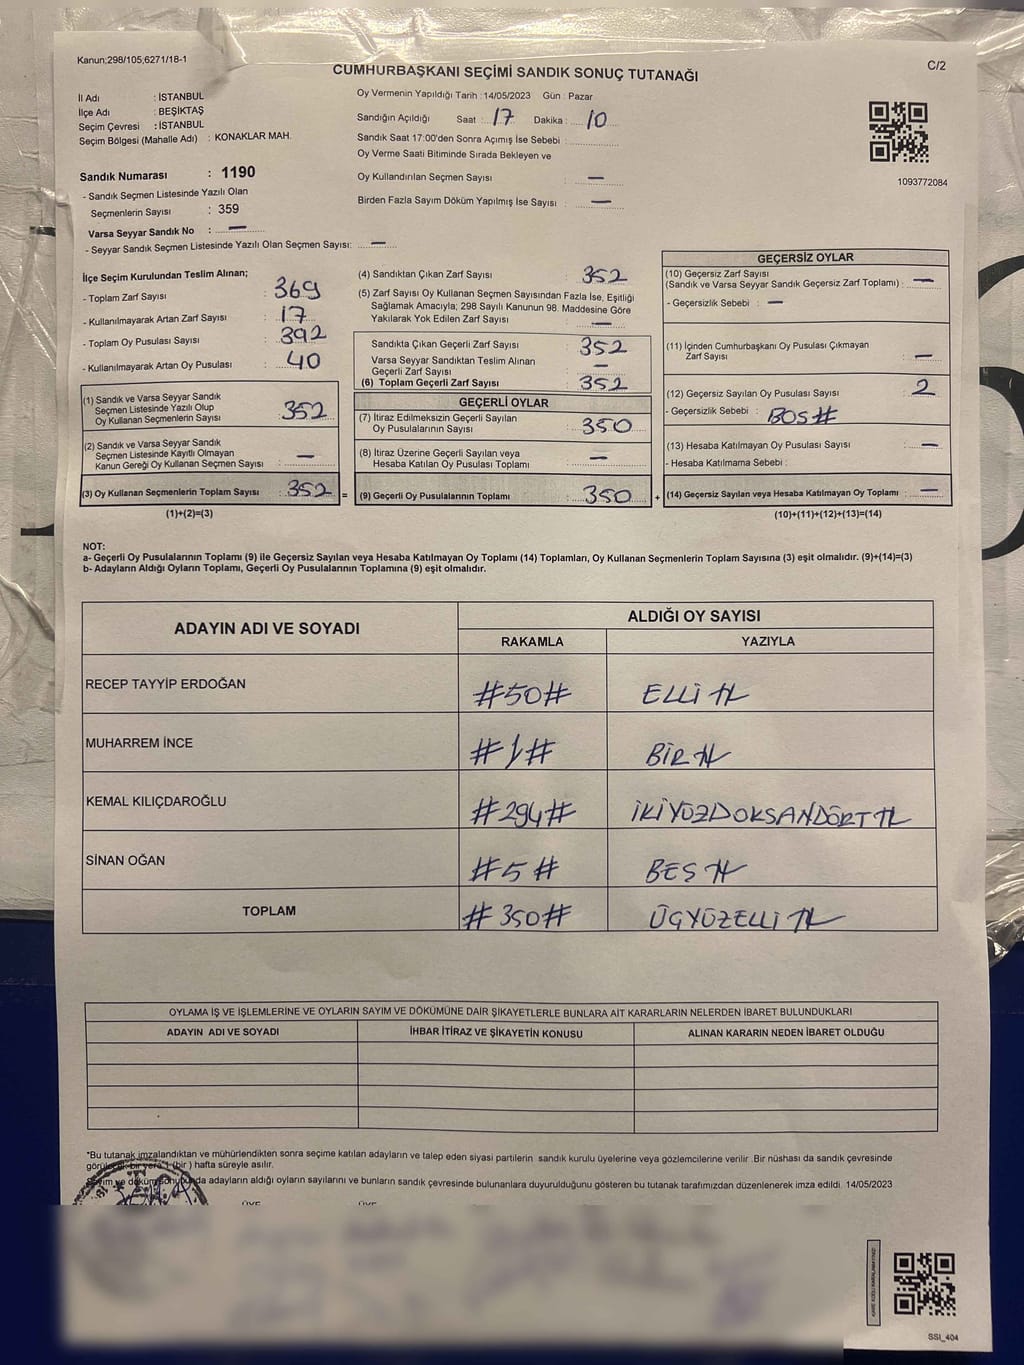 Kanun;298/105,6271/18-1
C/2
CUMHURBAŞKANI SEÇİMİ SANDIK SONUÇ TUTANAĞI
İl Adı : İSTANBUL
İlçe Adı : BEŞİKTAŞ
Seçim Çevresi : İSTANBUL
Seçim Bölgesi (Mahalle Adı) : KONAKLAR MAH.
Oy Vermenin Yapıldığı Tarih : 14/05/2023 Gün : Pazar
Sandığın Açıldığı Saat : 17 Dakika : 10
Sandık Saat 17:00'den Sonra Açımış İse Sebebi :
Oy Verme Saati Bitiminde Sırada Bekleyen ve
Oy Kullandırılan Seçmen Sayısı : —
Birden Fazla Sayım Döküm Yapılmış İse Sayısı : —
1093772084
Sandık Numarası : 1190
- Sandık Seçmen Listesinde Yazılı Olan
Seçmenlerin Sayısı : 359
Varsa Seyyar Sandık No : —
- Seyyar Sandık Seçmen Listesinde Yazılı Olan Seçmen Sayısı: —
İlçe Seçim Kurulundan Teslim Alınan;
- Toplam Zarf Sayısı : 369
- Kullanılmayarak Artan Zarf Sayısı : 17
- Toplam Oy Pusulası Sayısı : 392
- Kullanılmayarak Artan Oy Pusulası : 40
(1) Sandık ve Varsa Seyyar Sandık
Seçmen Listesinde Yazılı Olup
Oy Kullanan Seçmenlerin Sayısı : 352
(2) Sandık ve Varsa Seyyar Sandık
Seçmen Listesinde Kayıtlı Olmayan
Kanun Gereği Oy Kullanan Seçmen Sayısı : —
(3) Oy Kullanan Seçmenlerin Toplam Sayısı : 352 =
(1)+(2)=(3)
(4) Sandıktan Çıkan Zarf Sayısı : 352
(5) Zarf Sayısı Oy Kullanan Seçmen Sayısından Fazla İse, Eşitliği
Sağlamak Amacıyla; 298 Sayılı Kanunun 98. Maddesine Göre
Yakılarak Yok Edilen Zarf Sayısı : —
Sandıkta Çıkan Geçerli Zarf Sayısı : 352
Varsa Seyyar Sandıktan Teslim Alınan
Geçerli Zarf Sayısı : —
(6) Toplam Geçerli Zarf Sayısı : 352
GEÇERLİ OYLAR
(7) İtiraz Edilmeksizin Geçerli Sayılan
Oy Pusulalarının Sayısı : 350
(8) İtiraz Üzerine Geçerli Sayılan veya
Hesaba Katılan Oy Pusulası Toplamı : —
(9) Geçerli Oy Pusulalarının Toplamı : 350 +
GEÇERSİZ OYLAR
(10) Geçersiz Zarf Sayısı
(Sandık ve Varsa Seyyar Sandık Geçersiz Zarf Toplamı) : —
- Geçersizlik Sebebi : —
(11) İçinden Cumhurbaşkanı Oy Pusulası Çıkmayan
Zarf Sayısı : —
(12) Geçersiz Sayılan Oy Pusulası Sayısı : 2
- Geçersizlik Sebebi : BOS#
(13) Hesaba Katılmayan Oy Pusulası Sayısı : —
- Hesaba Katılmama Sebebi :
(14) Geçersiz Sayılan veya Hesaba Katılmayan Oy Toplamı : —
(10)+(11)+(12)+(13)=(14)
NOT:
a- Geçerli Oy Pusulalarının Toplamı (9) ile Geçersiz Sayılan veya Hesaba Katılmayan Oy Toplamı (14) Toplamları, Oy Kullanan Seçmenlerin Toplam Sayısına (3) eşit olmalıdır. (9)+(14)=(3)
b- Adayların Aldığı Oyların Toplamı, Geçerli Oy Pusulalarının Toplamına (9) eşit olmalıdır.
ADAYIN ADI VE SOYADI
ALDIĞI OY SAYISI
RAKAMLA YAZIYLA
RECEP TAYYİP ERDOĞAN #50# ELLİ #
MUHARREM İNCE #1# BİR #
KEMAL KILIÇDAROĞLU #294# İKİYÜZDOKSANDÖRT #
SİNAN OĞAN #5# BES #
TOPLAM #350# ÜÇYÜZELLİ #
OYLAMA İŞ VE İŞLEMLERİNE VE OYLARIN SAYIM VE DÖKÜMÜNE DAİR ŞİKAYETLERLE BUNLARA AİT KARARLARIN NELERDEN İBARET BULUNDUKLARI
ADAYIN ADI VE SOYADI İHBAR İTİRAZ VE ŞİKAYETİN KONUSU ALINAN KARARIN NEDEN İBARET OLDUĞU
*Bu tutanak imzalandıktan ve mühürlendikten sonra seçime katılan adayların ve talep eden siyasi partilerin sandık kurulu üyelerine veya gözlemcilerine verilir .Bir nüshası da sandık çevresinde
görülecek bir yere 1 (bir ) hafta süreyle asılır.
Sayım ve döküm sonunda adayların aldığı oyların sayılarını ve bunların sandık çevresinde bulunanlara duyurulduğunu gösteren bu tutanak tarafımızdan düzenlenerek imza edildi. 14/05/2023
ÜYE ÜYE
SSI_404